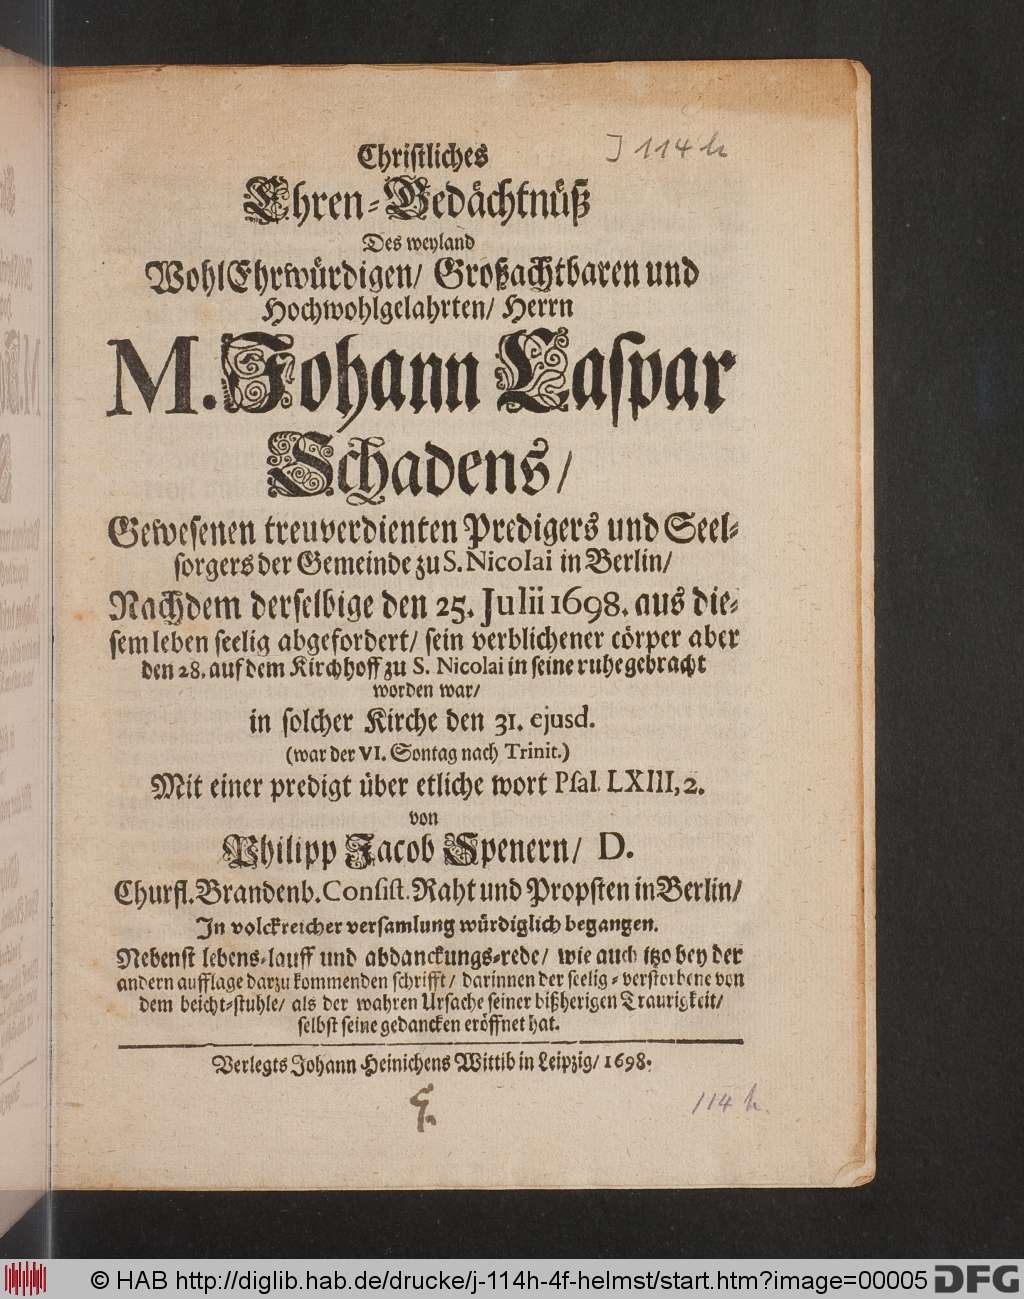 J 114 h
Christliches
Ehren-Gedächtnüß
Des weyland
WohlEhrwürdigen/ Großachtbaren und
Hochwohlgelahrten/ Herrn
M. Johann Caspar
Schadens/
Gewesenen treuverdienten Predigers und Seel-
sorgers der Gemeinde zu S. Nicolai in Berlin/
Nachdem derselbige den 25. Julii 1698. aus die-
sem leben seelig abgefordert/ sein verblichener cörper aber
den 28. auf dem Kirchhoff zu S. Nicolai in seine ruhe gebracht
worden war/
in solcher Kirche den 31. ejusd.
(war der VI. Sontag nach Trinit.)
Mit einer predigt über etliche wort Psal. LXIII, 2.
von
Philipp Jacob Spenern/ D.
Churfl. Brandenb. Consist. Raht und Propsten in Berlin/
In volckreicher versamlung würdiglich begangen.
Nebenst lebens-lauff und abdanckungs-rede/ wie auch itzo bey der
andern aufflage darzu kommenden schrifft/ darinnen der seelig-verstorbene von
dem beicht-stuhle/ als der wahren Ursache seiner bißherigen Traurigkeit/
selbst seine gedancken eröffnet hat.
Verlegts Johann Heinichens Wittib in Leipzig/ 1698.
114 h.
© HAB http://diglib.hab.de/drucke/j-114h-4f-helmst/start.htm?image=00005 DFG